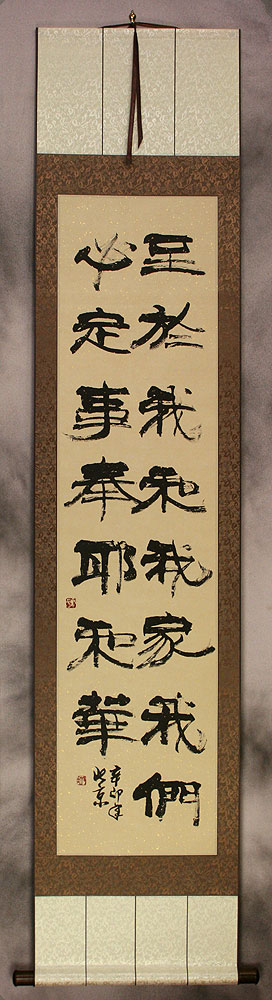 至於我和我家我們
必定事奉耶和華
辛卯年